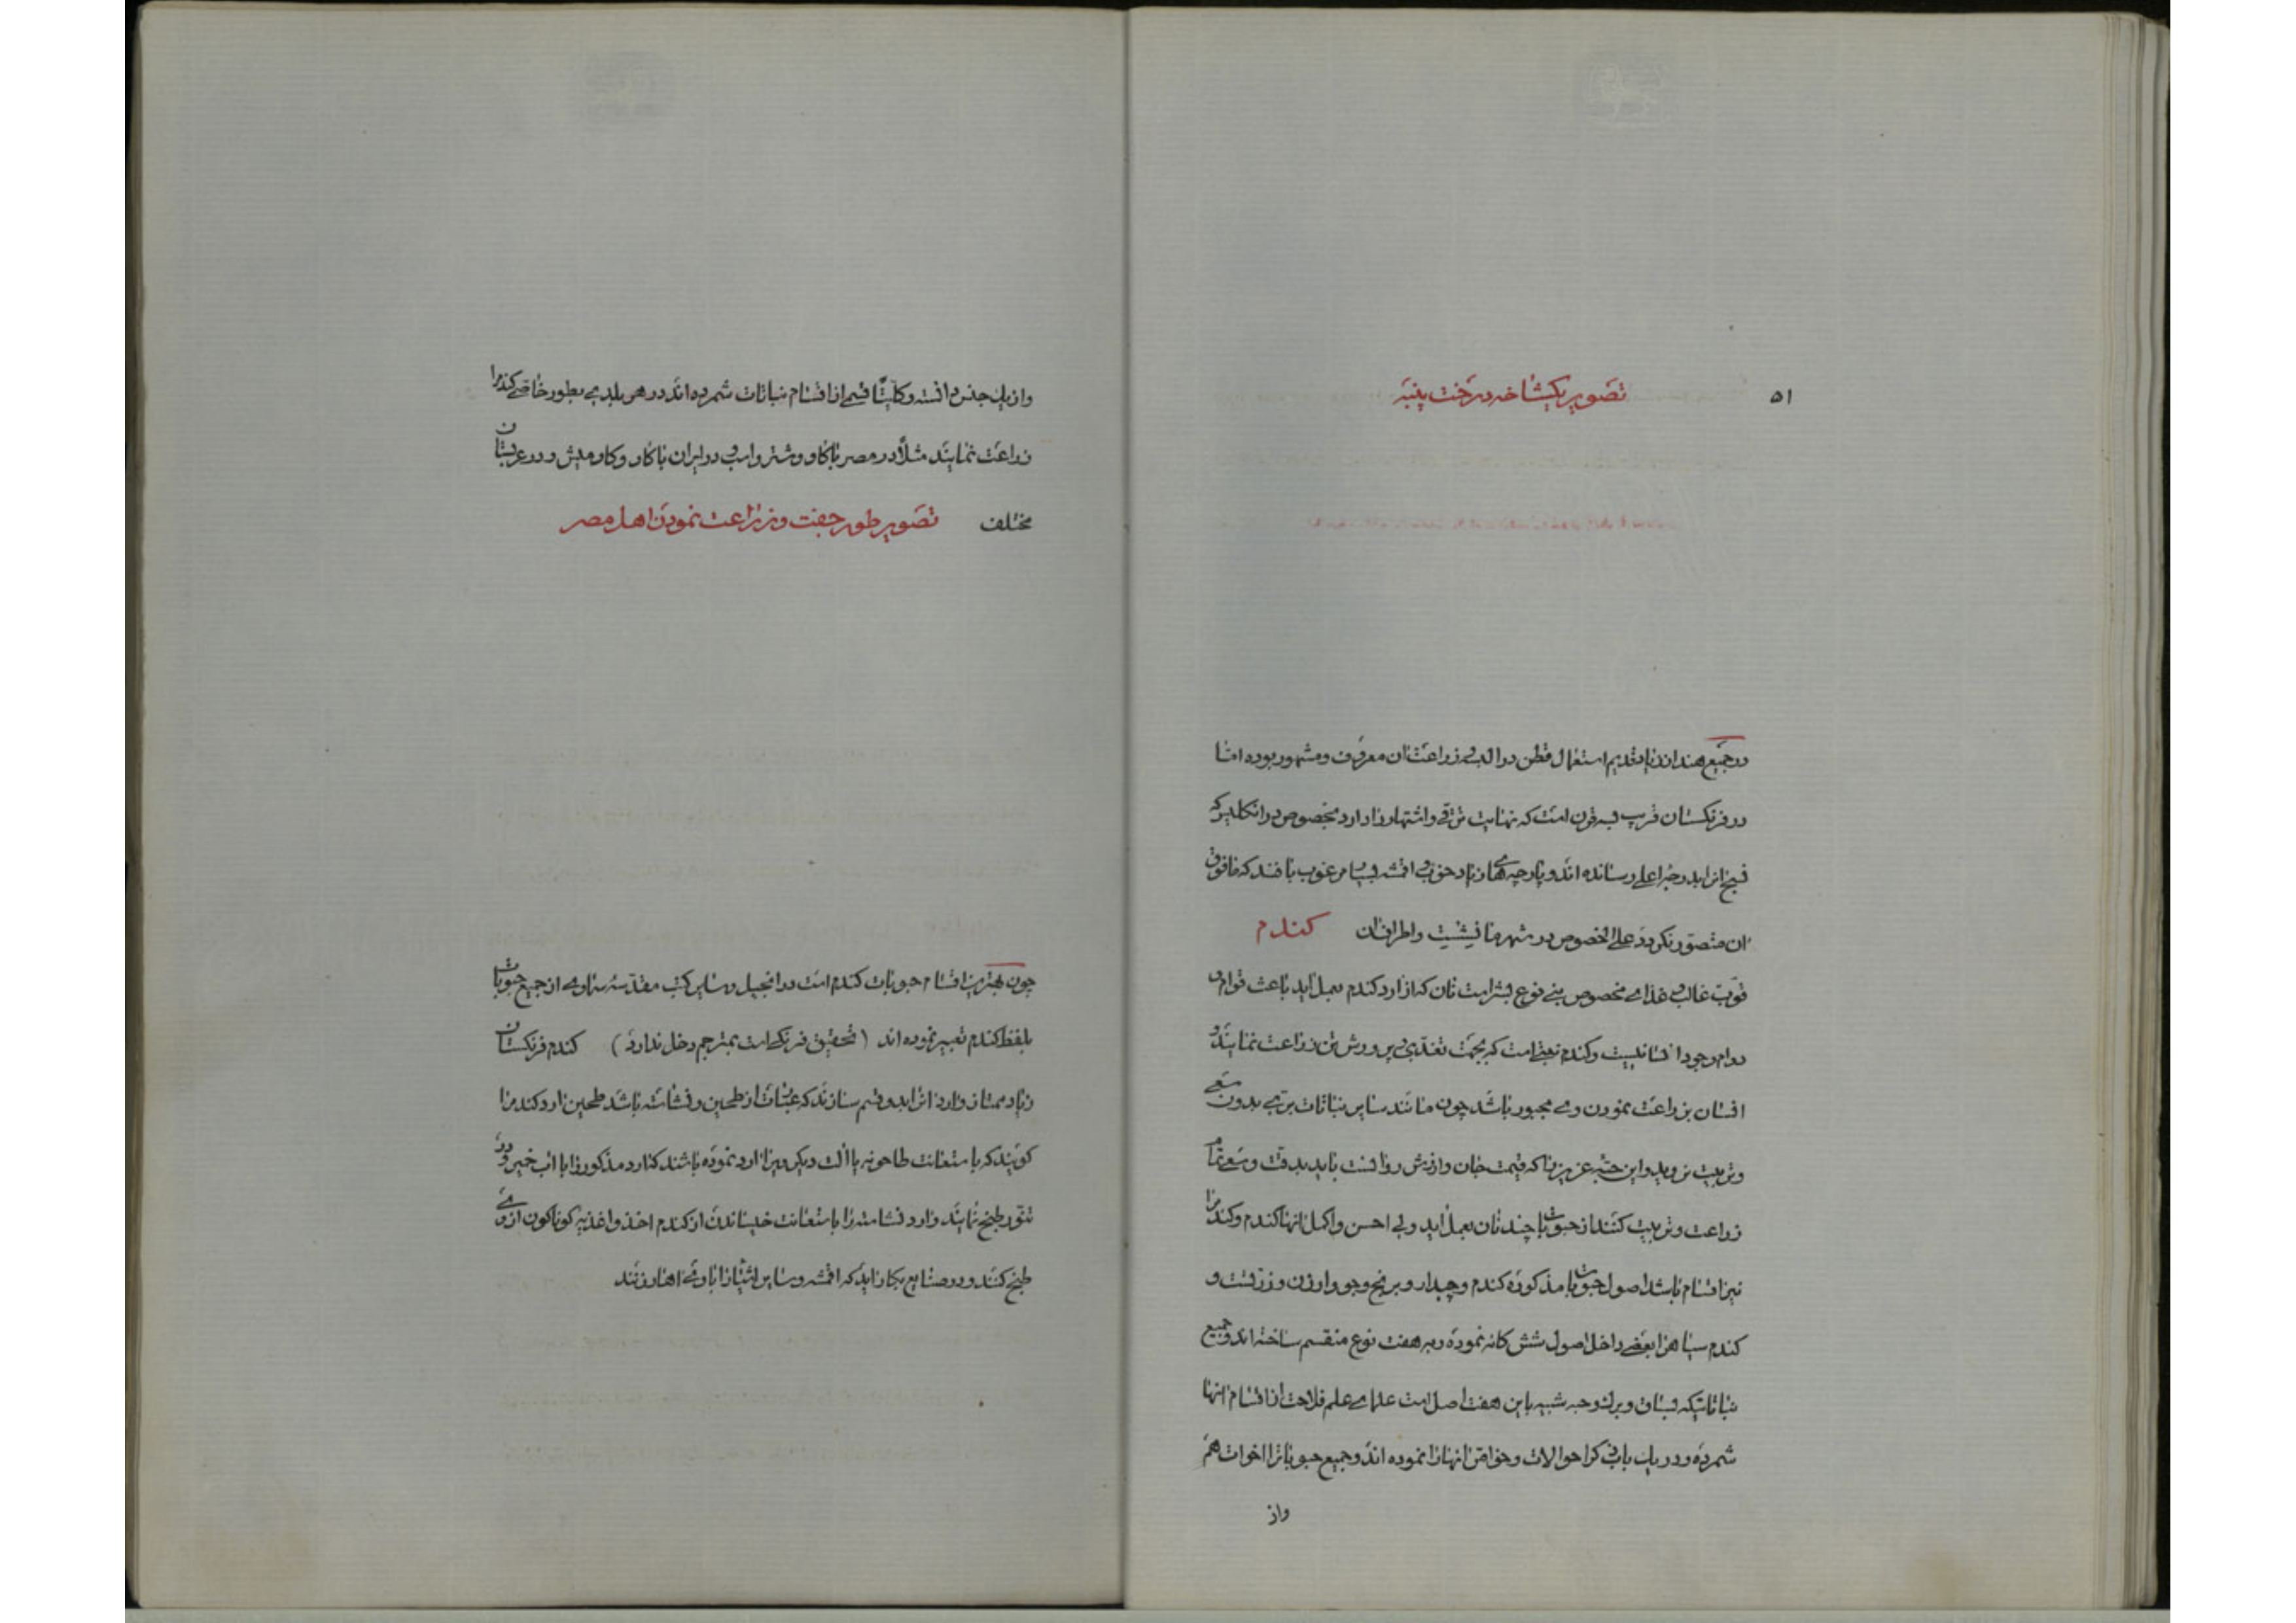 ۵۱
تصویر یکشاخه درخت پنبه
در جمیع هند از زیاد قدیم استعمال قطن در البسه و زراعت آن معروف و مشهور بوده اما
در فرنکستان قریب بسه قرن است که نهایت ترقی و اشتهار را دارد مخصوص در انکلیز که
نسج انرا بدرجه اعلی رسانده اند و پارچه های زیاد خوب و اقمشه بسیار مرغوب بافند که مافوق
ان متصور نکردد علی الخصوص در شهر مانیشیت و اطراف ان کندم
قوت غالب و غذای مخصوص بنی نوع بشر است نان که از ارد کندم بعمل اید باعث قوام و
دوام وجود انسانیست و کندم نعمتی است که بجهت تغذی و پرورش تن زراعت نمایند و
انسان بزراعت نمودن وی مجبور باشد چون مانند سایر نباتات بری بدون سعی
و تربیت نروید و این حبه عزیز را که قیمت جان و ارزش روانست باید بدقت و سعی تمام
زراعت و تربیت کنند از حبوبات چند نان بعمل اید ولی احسن و اکمل انها کندم و کندم را
نیز اقسام باشد اصول حبوبات مذکوره کندم و چدار و برنج و جو و ارزن و زرتست و
کندم سیاه را بعضی داخل اصول شش کانه نموده و به هفت نوع منقسم ساخته اند و جمیع
نباتاتیکه بساق و برك و حبه شبیه باین هفت اصل است علمای علم فلاحت از اقسام انها
شمرده و در یك باب ذکر احوالات و خواص انها را نموده اند و جمیع حبوبات را اخوات هم
واز
واز یك جنس دانسته و کلیتا قسمی از اقسام نباتات شمرده اند در هر بلدی بطور خاصی کندم را
زراعت نمایند مثلا در مصر با کاو و شتر و اسب و در ایران با کاو و کاومیش و در عربستان
مختلف تصویر طور جفت و زراعت نمودن اهل مصر
چون بهترین اقسام حبوبات کندم است در انجیل و سایر کتب مقدسه سماوی از جمیع حبوبات
بلفظ کندم تعبیر نموده اند (تحقیق فرنکی است بمترجم دخل ندارد) کندم فرنکستان
زیاد ممتاز و ارد انرا بدو قسم سازند که عبارت از طحین و نشاسته باشد طحین ارد کندم را
کویند که باستعانت طاحونه یا الت دیکر ویرا ارد نموده باشند که ارد مذکور را با اب خمیر و در
تنور طبخ نمایند و ارد نشاسته را باستعانت خیساندن از کندم اخذ و اغذیه کوناکون از وی
طبخ کنند و در صنایع بکار اید که اقمشه و سایر اشیا را با وی اهار زنند